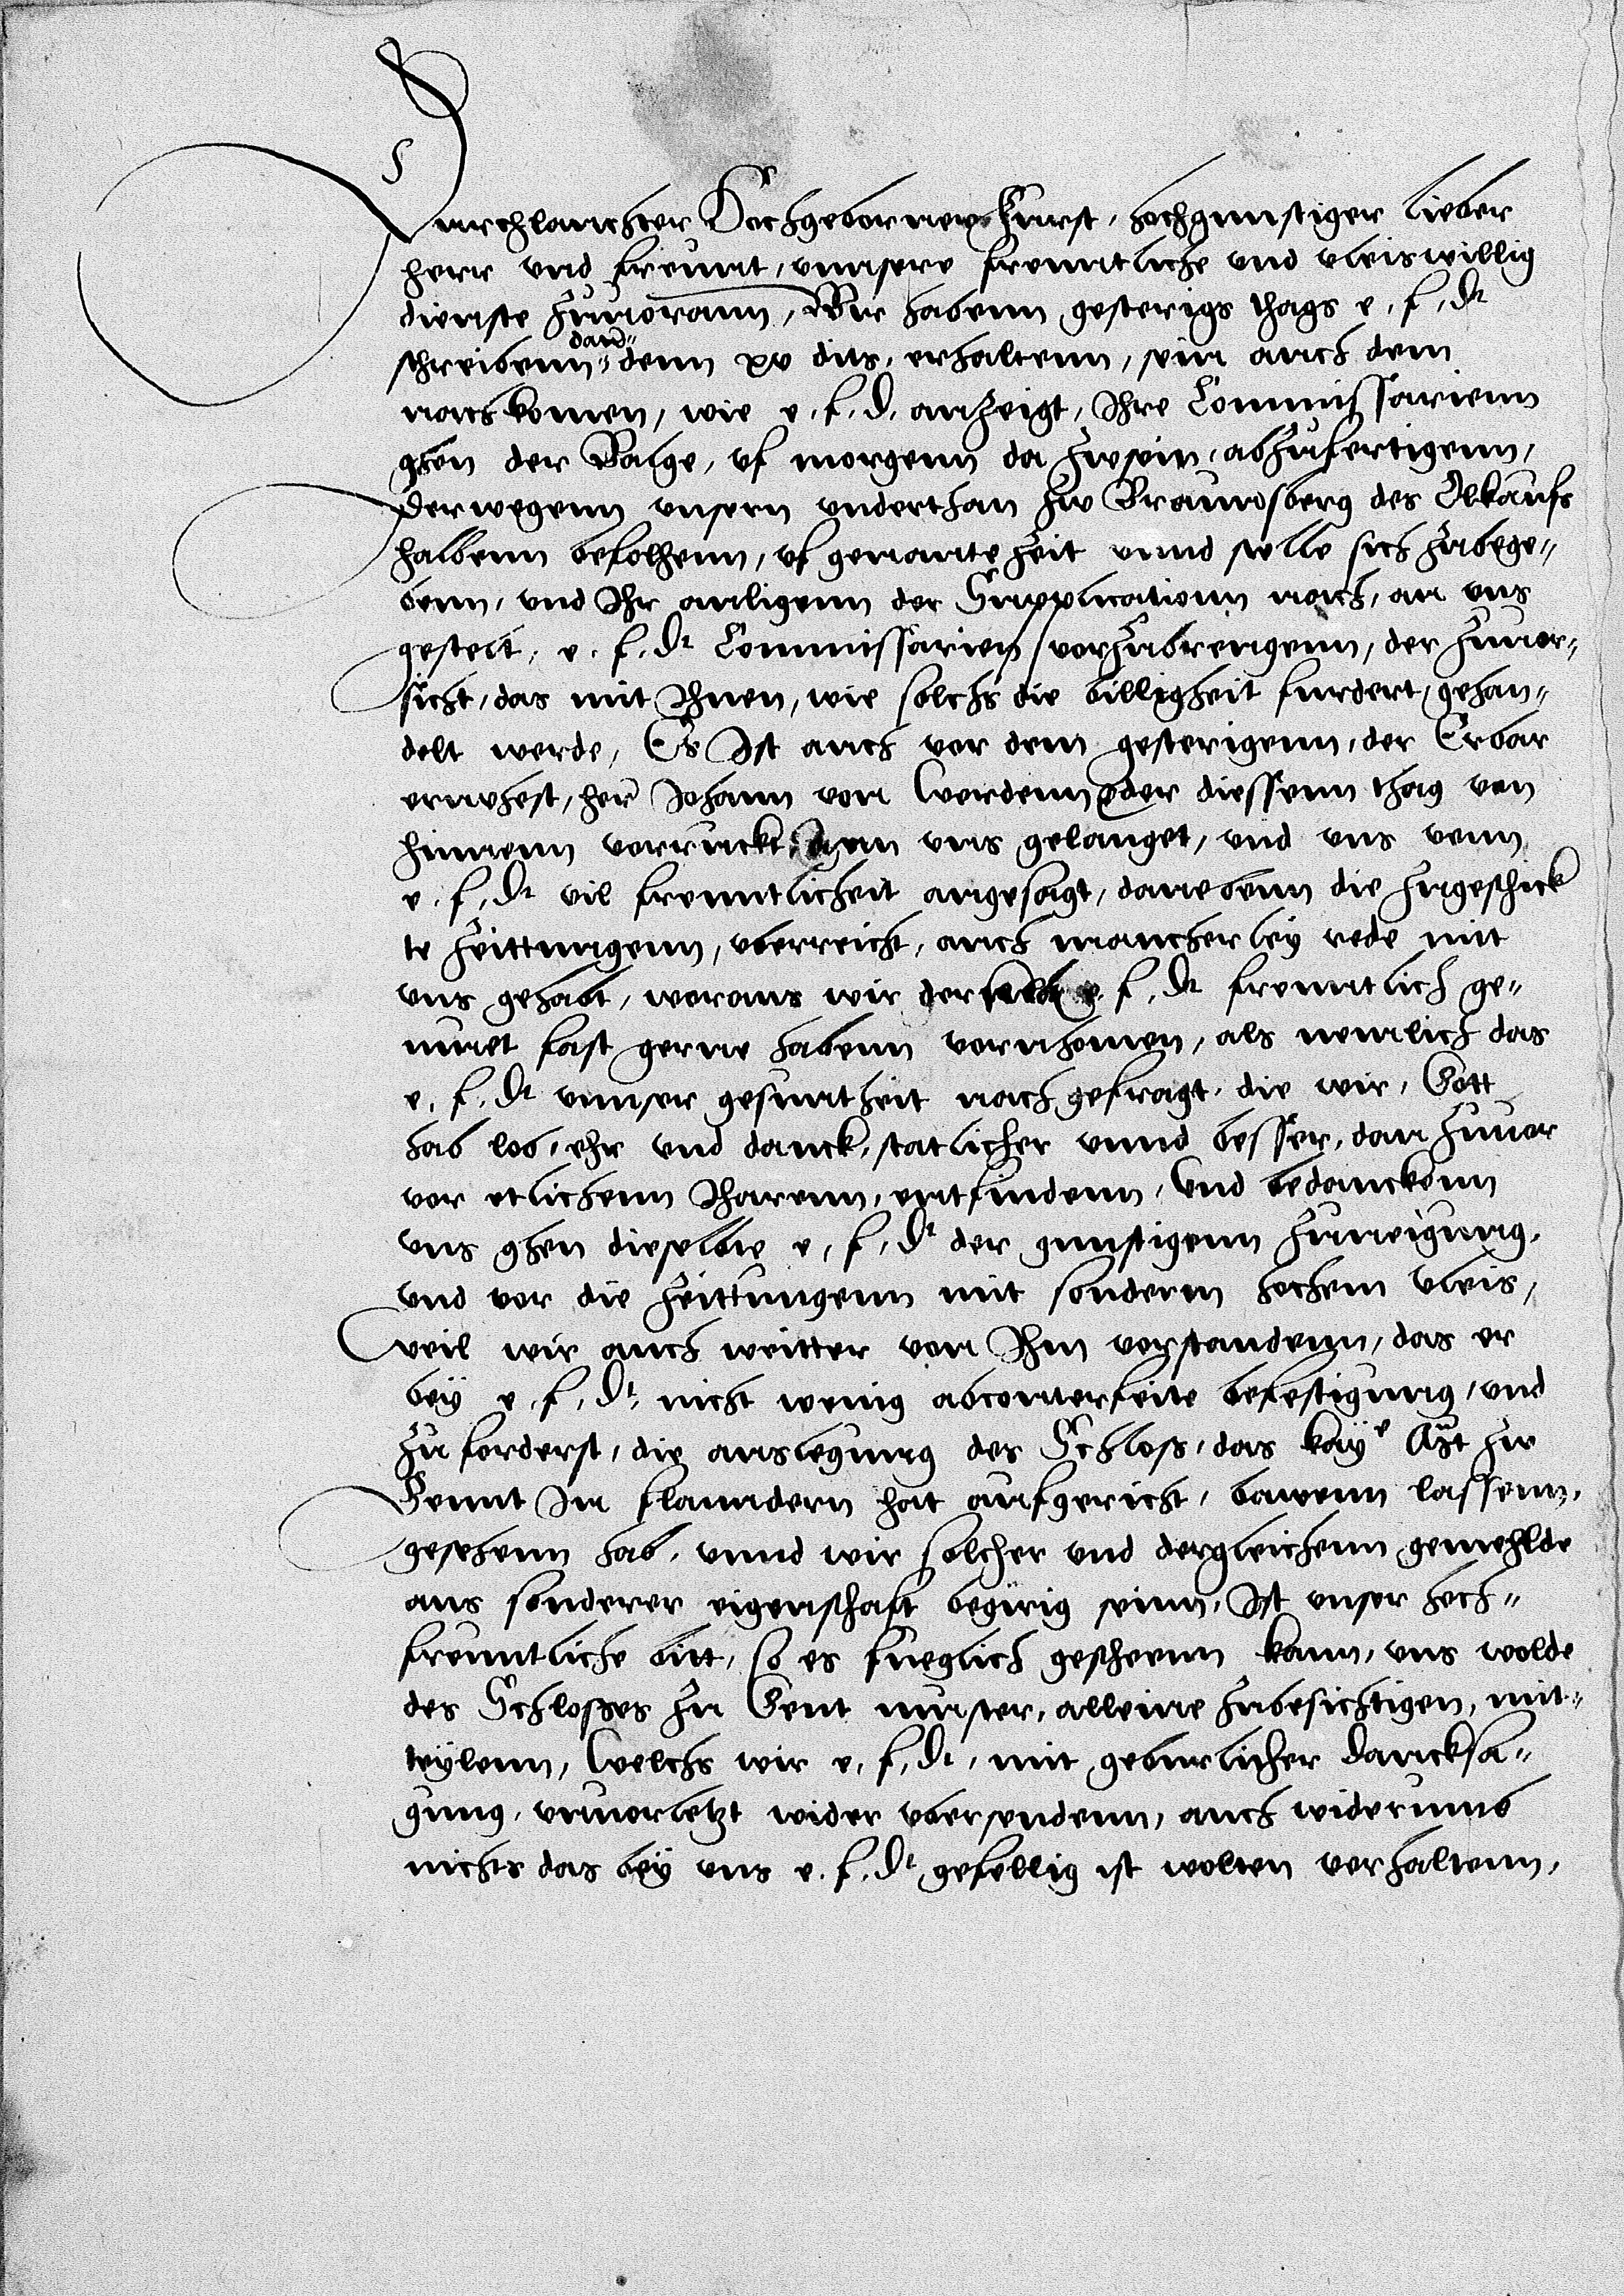 Durchlauchter Hochgeborner Furst, hochgunstiger lieber
herr vnd freunt, vnnsere freuntliche vnd vleiswillig
dienste zuuorann, Wir habenn gesterigs thags e. f. Dt
schreibenn dan denn xv dits, erhaltenn, sein auch dem
nachkomen, wie e. f. D. anzeigt, Ihre Commissarienn
ghen der Balge, vf morgenn da zusein, abzufertigenn,
Derwegenn vnsern vnderthan zw Braunsberg des Olkaufs
halbenn befolhenn, vf genante Zeit vnnd stelle sich zubege-
benn, vnd Ihr anligenn der Supplicationn nach, an vns
gestelt, e. f. Dt Commissarien vorzubrengenn, der zuuor-
sicht, das mit Ihnen, wie solchs die billigheit furdert, gehan-
delt werde, Es Ist auch vor dem gesterigenn, der Erbar
ernuhest, her Johann von Werdenn der diessenn thag von
hinnenn vorruckt, an vns gelanget, vnd vns vonn
e. f. Dt vil freuntlicheit angesagt, danebenn die zugeschick
te Zeittungenn, vberreicht, auch mancherley rede mit
vns gehabt, woraus wir derselben e. f. Dt freuntlich ge-
muet fast gerne habenn vornhomen, als nemlich das
e. f. Dt vnnser gesuntheit nachgefragt, die wir, Gott
hab lob, ehr vnd danck, statlicher vnnd besser, dan zuuor
vor etlichenn Iharenn, entfindenn, Vnd bedanckenn
vns ghen dieselbie e. f. Dt der gunstigenn zuneigung,
vnd vor die Zeittungenn mit sonderm hochem vleis,
Weil wir auch weitter von Ihm vorstandenn, das er
bey e. f. Dt nicht wenig abconterfeite befestigung, vnd
zu forderst, die auslegung des Schloss, das kay<sup>e</sup> Mt zw
Gennt In flanndern hat aufgericht, bawenn lassenn,
gesehenn hab, vnnd wir solcher vnd dergleichenn gemehlde
aus sonderer eigenschaft begirig seinn, Ist vnser hoch-
freuntliche bitt, so es fueglich gescheenn kann, vns wolde
des Schlosses zu Gent muster, alleine zubesichtigen, mit-
teylenn, Welchs wir e. f. Dt, mit geburlicher dancksa-
gung, vnuorletzt wider vbersendenn, auch widerumb
nichts das bey vns e. f. Dt gefellig ist wolten vorhaltenn,